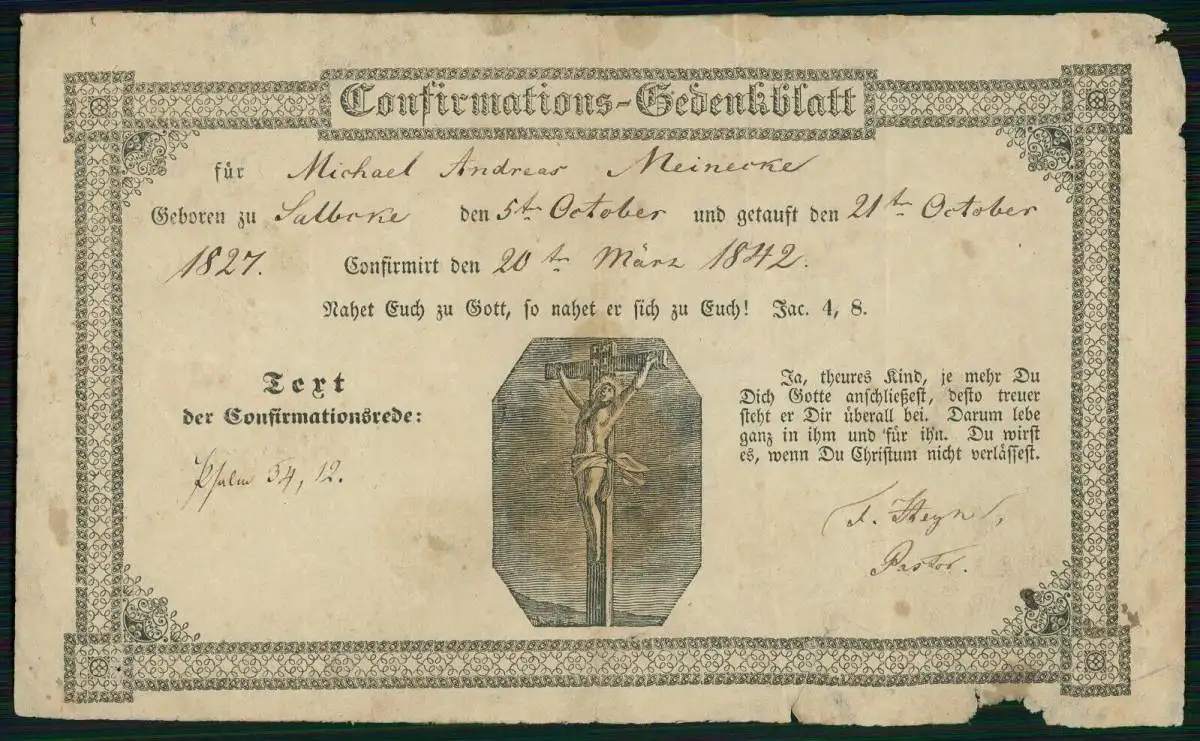 Confirmations-Gedenkblatt
für Michael Andreas Meinecke
Geboren zu Salbcke den 5t. October und getauft den 21ten October
1827. Confirmirt den 20ten März 1842.
Nahet Euch zu Gott, so nahet er sich zu Euch! Jac. 4, 8.
Text
der Confirmationsrede:
Psalm 34, 12.
Ja, theures Kind, je mehr Du
Dich Gotte anschließest, desto treuer
steht er Dir überall bei. Darum lebe
ganz in ihm und für ihn. Du wirst
es, wenn Du Christum nicht verlässest.
Pastor.